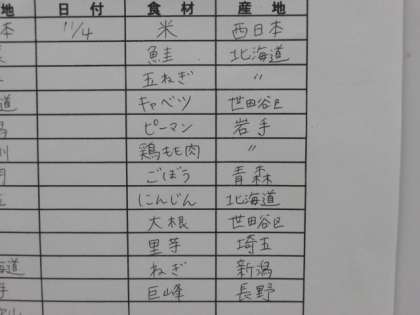 地 日付 食材 産地
本 11/4 米 西日本
鮭 北海道
玉ねぎ 〃
道 キャベツ 世田谷区
ピーマン 岩手
川 鶏もも肉 〃
ごぼう 青森
にんじん 北海道
大根 世田谷区
里芋 埼玉
海道 ねぎ 新潟
手 巨峰 長野